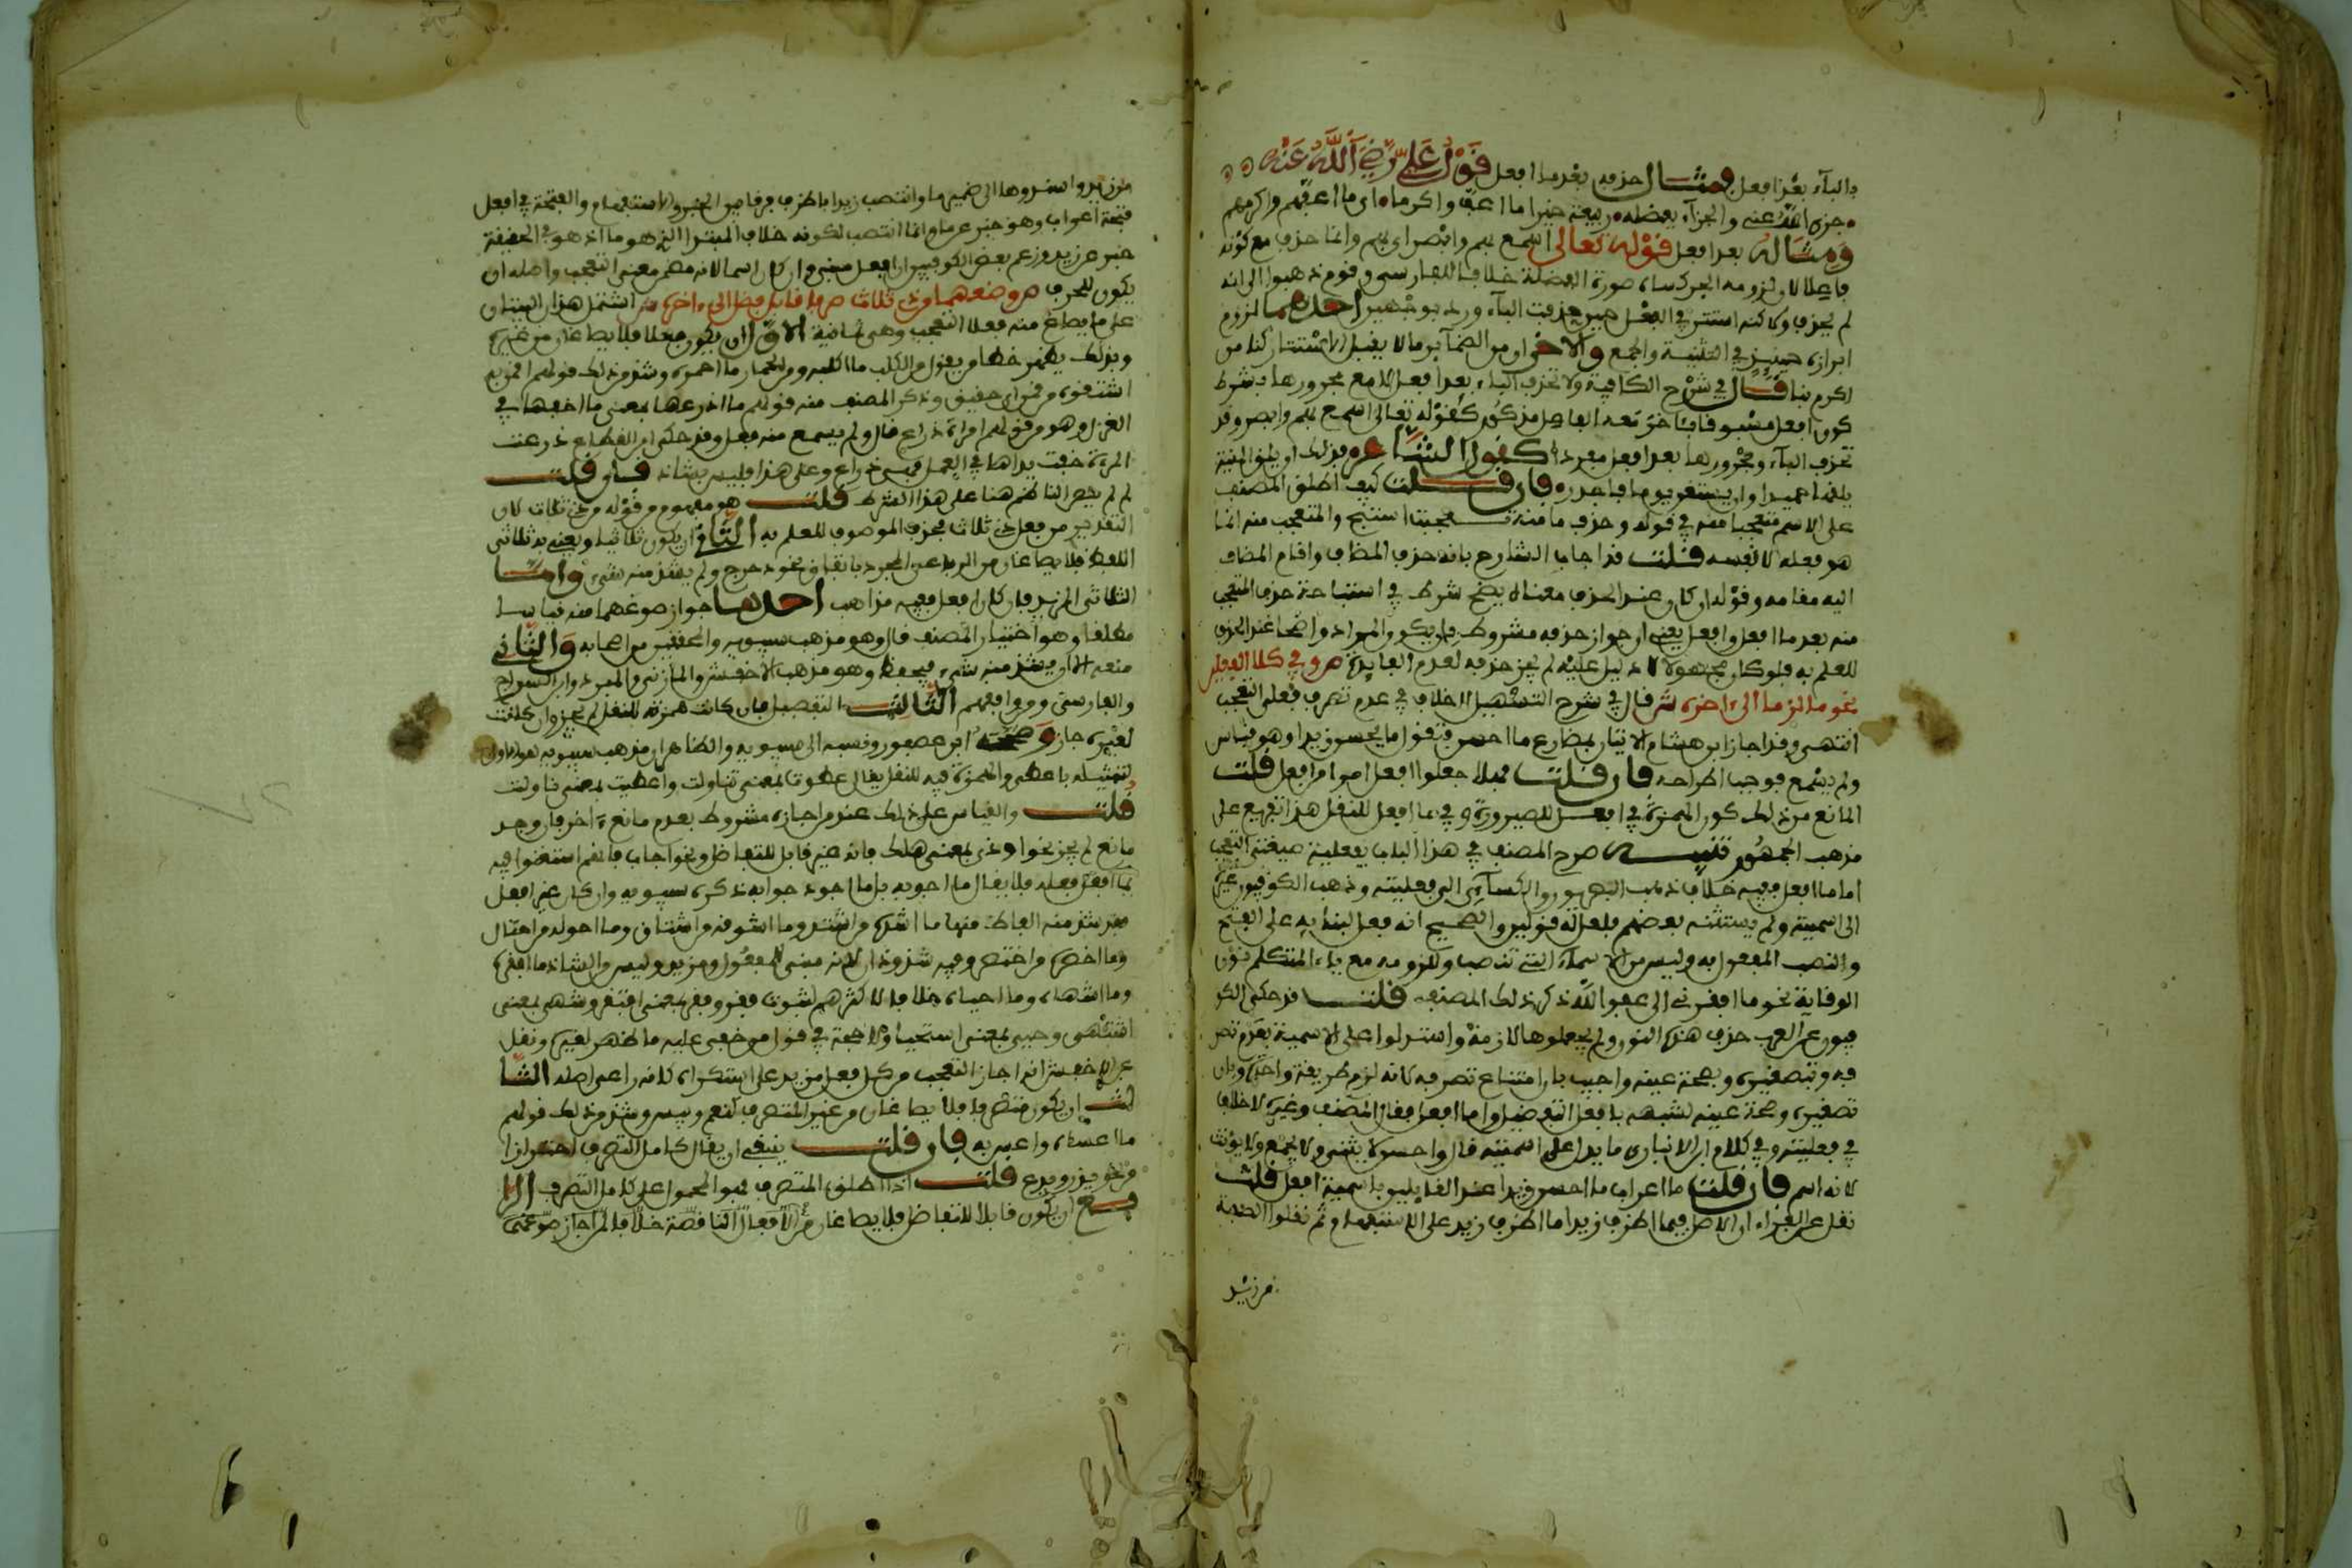 بالباء بعد افعل ومثال حذفه بعد ما افعل قول علي رضي الله عنه
جزى الله عني والجزاء بفضله ربيعة خيرا ما اعف واكرما اي ما اعفهم واكرمهم
ومثاله بعد افعل قوله تعالى اسمع بهم وابصر اي بهم وانما حذف مع كونه
فاعلا لان لزومه الجر كساه صورة الفضلة خلافا للفارسي وقوم ذهبوا الى انه
لم يحذف ولاكنه استتر في الفعل حين حذفت الباء ورد بوجهين احدهما لزوم
ابرازه حينئذ في التثنية والجمع والاخر ان من الضمائر ما لا يقبل الاستتار كنا من
اكرم بنا قال في شرح الكافية ولا تحذف الباء بعد افعل الا مع مجرورها بشرط
كون افعل مسبوقا باخر معه الفاعل مذكور كقوله تعالى اسمع بهم وابصر وقد
تحذف الباء ومجرورها بعد افعل مفردا كقول الشاعر فذلك ان يلق المنية
يلقها حميدا وان يستغن يوما فاجدر فان قلت كيف اطلق المصنف
على الاسم متعجبا منه في قوله وحذف ما منه تعجبت استبح والمتعجب منه انما
هو فعله لا نفسه قلت قد اجاب الشارح بانه حذف المضاف واقام المضاف
اليه مقامه وقوله ان كان عند الحذف معناه يضح شرط في استباحة حذف المتعجب
منه بعد ما افعل وافعل يعني ان جواز حذفه مشروط بان يكون المراد واضحا عند الحذف
للعلم به فلو كان مجهولا لا دليل عليه لم يجز حذفه لعدم الفايدة ص وفي كلا الفعلين
نحو ما لزما الى اخره ش قال في شرح التسهيل لا خلاف في عدم تصرف فعلي التعجب
انتهى وقد اجاز ابن هشام الاتيان بمضارع ما احسن فتقول ما يحسن زيدا وهو قياس
ولم يسمع فوجب اطراحه فان قلت فهلا جعلوا افعل امرا من افعل قلت
المانع من ذلك كون الهمزة في افعل للصيرورة وفي ما افعل للنقل هذا تفريع على
مذهب الجمهور تنبيه صرح المصنف في هذا الباب بفعلية صيغتي التعجب
اما ما افعل ففيه خلاف ذهب البصريون والكسائي الى فعليته وذهب الكوفيون غيره
الى اسميته ولم يستثنه بعضهم فلعل له قولين والصحيح انه فعل لبنائه على الفتح
ونصب المفعول به وليس من الاسماء التي تنصب وللزومه مع ياء المتكلم نون
الوقاية نحو ما افقرني الى عفو الله ذكر ذلك المصنف قلت قد حكى الكو
فيون عن العرب حذف هذه النون ولم يجعلوها لازمة واستدلوا على الاسمية بعدم تصر
فه وتصغيره وبصحة عينه واجيب بان امتناع تصرفه لانه لزم طريقة واحدة وبان
تصغيره وصحة عينه لشبهه بافعل التفضيل واما افعل فقال المصنف وغيره لا خلاف
في فعليته وفي كلام ابن الانباري ما يدل على اسميته قال واحسن لا يثنى ولا يجمع ولا يؤنث
لانه اسم فان قلت ما اعراب ما احسن زيدا عند القايلين باسمية افعل قلت
نقل عن الفراء ان الاصل في ما اظرف زيدا ما اظرف زيد على الاستفهام ثم نقلوا الصفة
من زيد
من زيد واسندوها الى ضمير ما وانتصب زيدا باظرف فرقا بين الخبر والاستفهام والفتحة في افعل
فتحة اعراب وهو خبر عن ما وانما انتصب لكونه خلاف المبتدا الذي هو ما اذ هو في الحقيقة
خبر عن زيد وزعم بعض الكوفيين ان افعل مبني وان كان اسما لانه ضمن معنى التعجب واصله ان
يكون للحرف ص وصغهما من ذي ثلاث صرفا قابل فضل الى اخره ش اشتمل هذان البيتان
على ما يصاغ منه فعلا التعجب وهي ثمانية الاول ان يكون فعلا فلا يصاغان من غيره
وبذلك يظهر خطا من يقول من الكلب ما اكلبه ومن الحمار ما احمره وشذ من ذلك قولهم اقمن به
اشتقوه من قمن اي حقيق وذكر المصنف منه قولهم ما اذرعها بمعنى ما اخفها في
الغزل وهو من قولهم امراة ذراع قال ولم يسمع منه فعل وقد حكى ابن القطاع ذرعت
المرءة خفت يداها في العمل فهي ذراع وعلى هذا فليس بشاذ فان قلت
لم لم ينص الناظم هنا على هذا الشرط قلت هو مفهوم من قوله من ذي ثلاث لان
التقدير من فعل ذي ثلاث فحذف الموصوف للعلم به الثاني ان يكون ثلاثيا ويعني به ثلاثي
اللفظ فلا يصاغان من الرباعي المجرد باتفاق نحو دحرج ولم يشذ منه شيء واما
الثلاثي المزيد فان كان افعل ففيه مذاهب احدها جواز صوغهما منه قياسا
مطلقا وهو اختيار المصنف قال وهو مذهب سيبويه والمحققين من اصحابه والثاني
منعه الا ان يشذ منه شيء فيحفظ وهو مذهب الاخفش والمازني والمبرد وابن السراج
والفارسي ومن وافقهم الثالث التفصيل فان كانت همزته للنقل لم يجز وان كانت
لغيره جاز وصححه ابن عصفور ونسبه الى سيبويه والظاهر ان مذهب سيبويه هو الاول
لتمثيله باعطى والهمزة فيه للنقل يقال عطوت بمعنى تناولت واعطيت بمعنى ناولت
قلت والقياس على ذلك عند من اجازه مشروط بعدم مانع ءاخر فان وجد
مانع لم يجز نحو اودى بمعنى هلك فانه غير قابل للتفاضل ونحو اجاب فانهم استغنوا فيه
بما افعل فعله فلا يقال ما اجوبه بل ما اجود جوابه ذكره سيبويه وان كان غير افعل
فقد شذ منه الفاظ منها ما اشده من اشتد وما اشوقه من اشتاق وما احوله من احتال
وما اخصره من اختصر وفيه شذوذان لانه مبني للمفعول ومزيد وليس من الشاذ ما افقره
وما اشهاه وما احياه خلافا لاكثرهم لثبوت فقر وفقر بمعنى افتقر وشهي بمعنى
اشتهى وحيي بمعنى استحيا ولا حجة في قول من خفي عليه ما ظهر لغيره ونقل
عن الاخفش انه اجاز التعجب من كل فعل مزيد على استكراه لانه راعى اصله الثا
لث ان يكون متصرفا فلا يصاغان من غير المتصرف كنعم وبيس وشذ من ذلك قولهم
ما اعساه واعس به فان قلت ينبغي ان يقال كامل التصرف احترازا
من نحو يذر ويدع قلت اذا اطلق المتصرف فهو المحمول على كامل التصرف الرا
بع ان يكون قابلا للتفاضل فلا يصاغان من الافعال الناقصة خلافا لمن اجاز صوغ